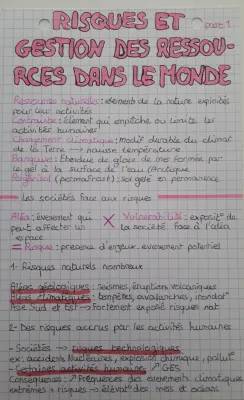 RISQUES ET page 1
GESTION DES RESSOU-
RCES DANS LE MONDE
Ressources naturelles : éléments de la nature exploités
pour leur activités
Contrainte : Élément qui empêche ou limite les
activités humaines
Changement climatique : Modif durable du climat
de la Terre → hausse température
Banquise : Étendue de glace de mer formée par
le gel à la surface de l'eau (Arctique
Pergélisol (permafrost) : sol gelé en permanence
les sociétés face aux risques
Aléa : évenement qui × Vulnérabilité : exposit° de
peut affecter un la société face à l'aléa
espace
= Risque : présence d'enjeux, évenement potentiel
1- Risques naturels nombreux
Aléas géologiques : Séismes, éruptions volcaniques
Aléas climatiques : tempêtes, avalanches, inondat°
Asie Sud et Est → Fortement exposé risques nat
2- Des risques accrus par les activités humaines
- Sociétés → risques technologiques
ex : accidents Nucléaires, explosion chimique, pollut°
- Certaines activités humaines ↗ GES
Conséquences : ↗ Fréquences des évenements climatiques
extrêmes + risques → élévat° des mers et océans